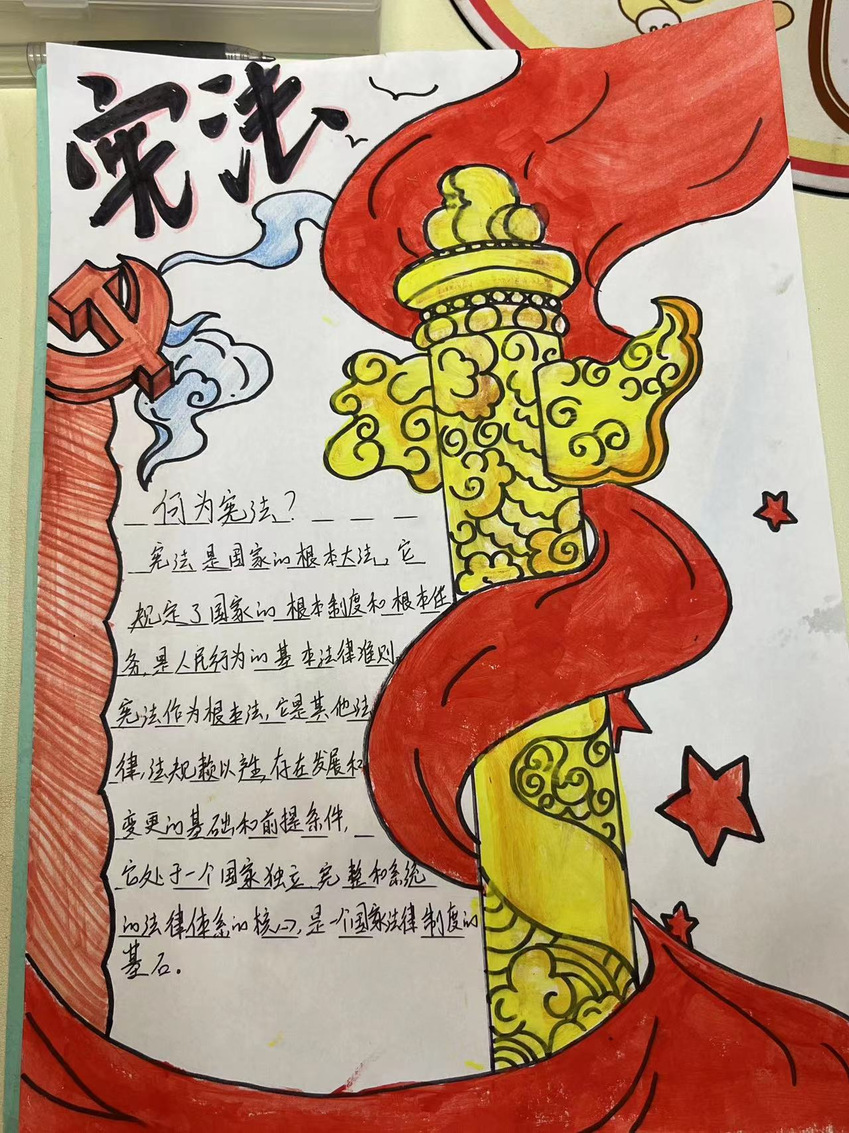 宪法
何为宪法？
宪法是国家的根本大法，它
规定了国家的根本制度和根本任
务，是人民行为的基本法律准则
宪法作为根本法，它是其他法
律，法规赖以产生，存在发展和
变更的基础和前提条件，
它处于一个国家独立完整和系统
的法律体系的核心，是一个国家法律制度的
基石。